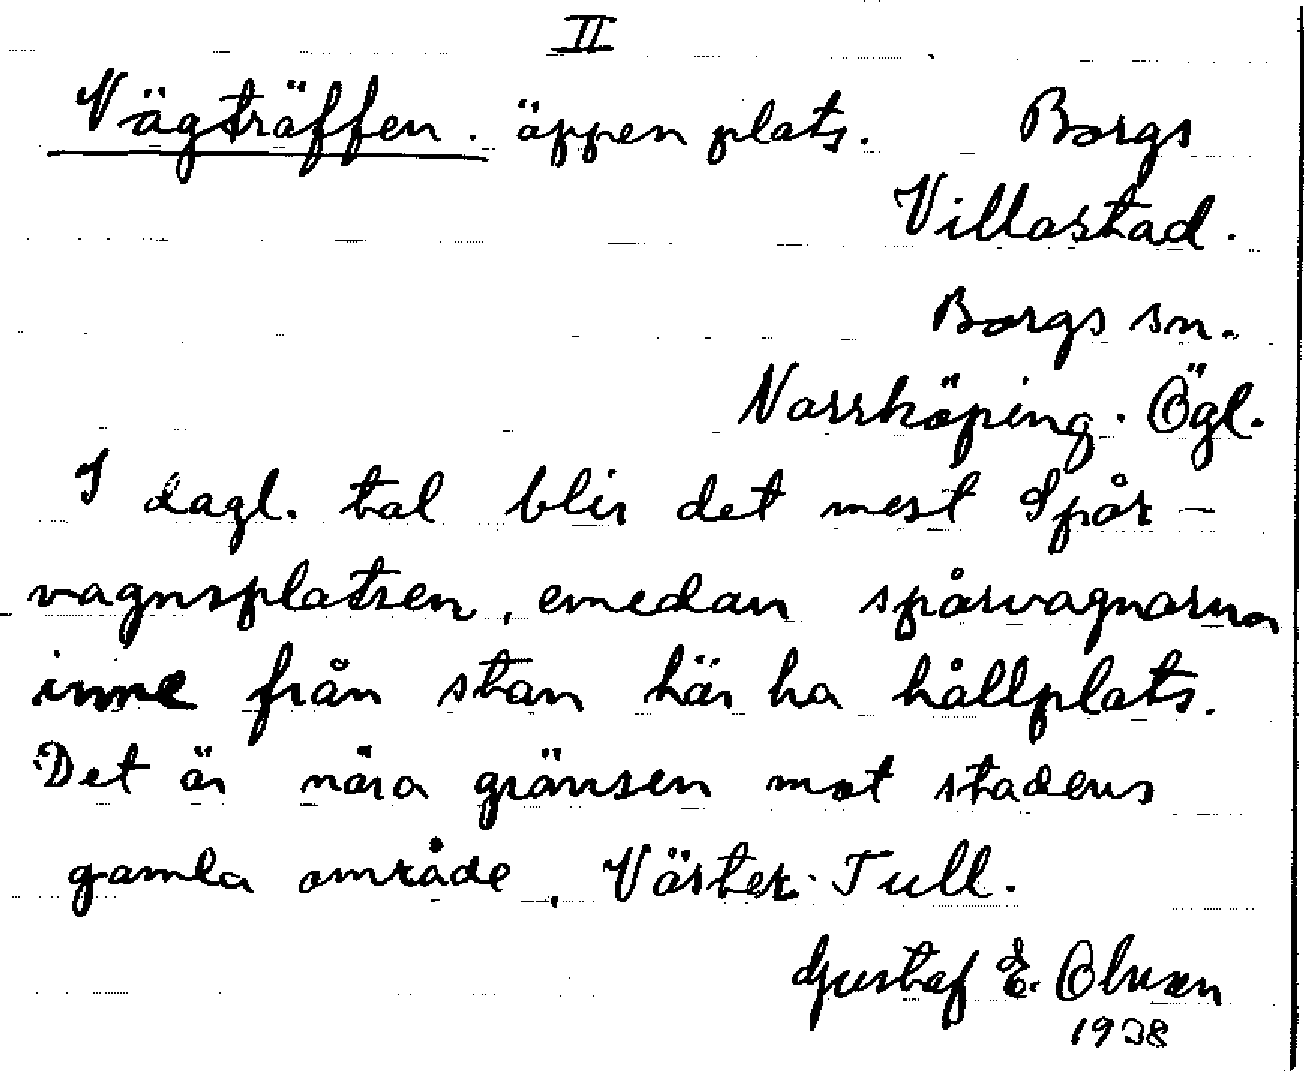 II
Vägträffen. äppen plats. Borgs
Villastad.
Borgs sn.
Norrköping. Ögl.
I dagl. tal blir det mest Spår-
vagnsplatsen, emedan spårvagnarna
inne från stan här ha hållplats.
Det är nära gränsen mot stadens
gamla område, Väster Tull.
Gustaf E. Olsson
1938